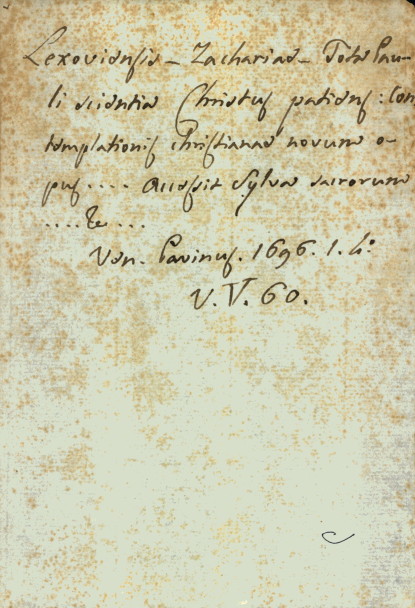 Lexoviensis – Zachariae – Tota Pau-
li scientia Christus patiens: Con
templationis Christianae novum o-
pus .... accessit Sylva sacrorum
.... &c ...
Ven. Pavinus. 1696. 1. 4.º
V. V. 60.